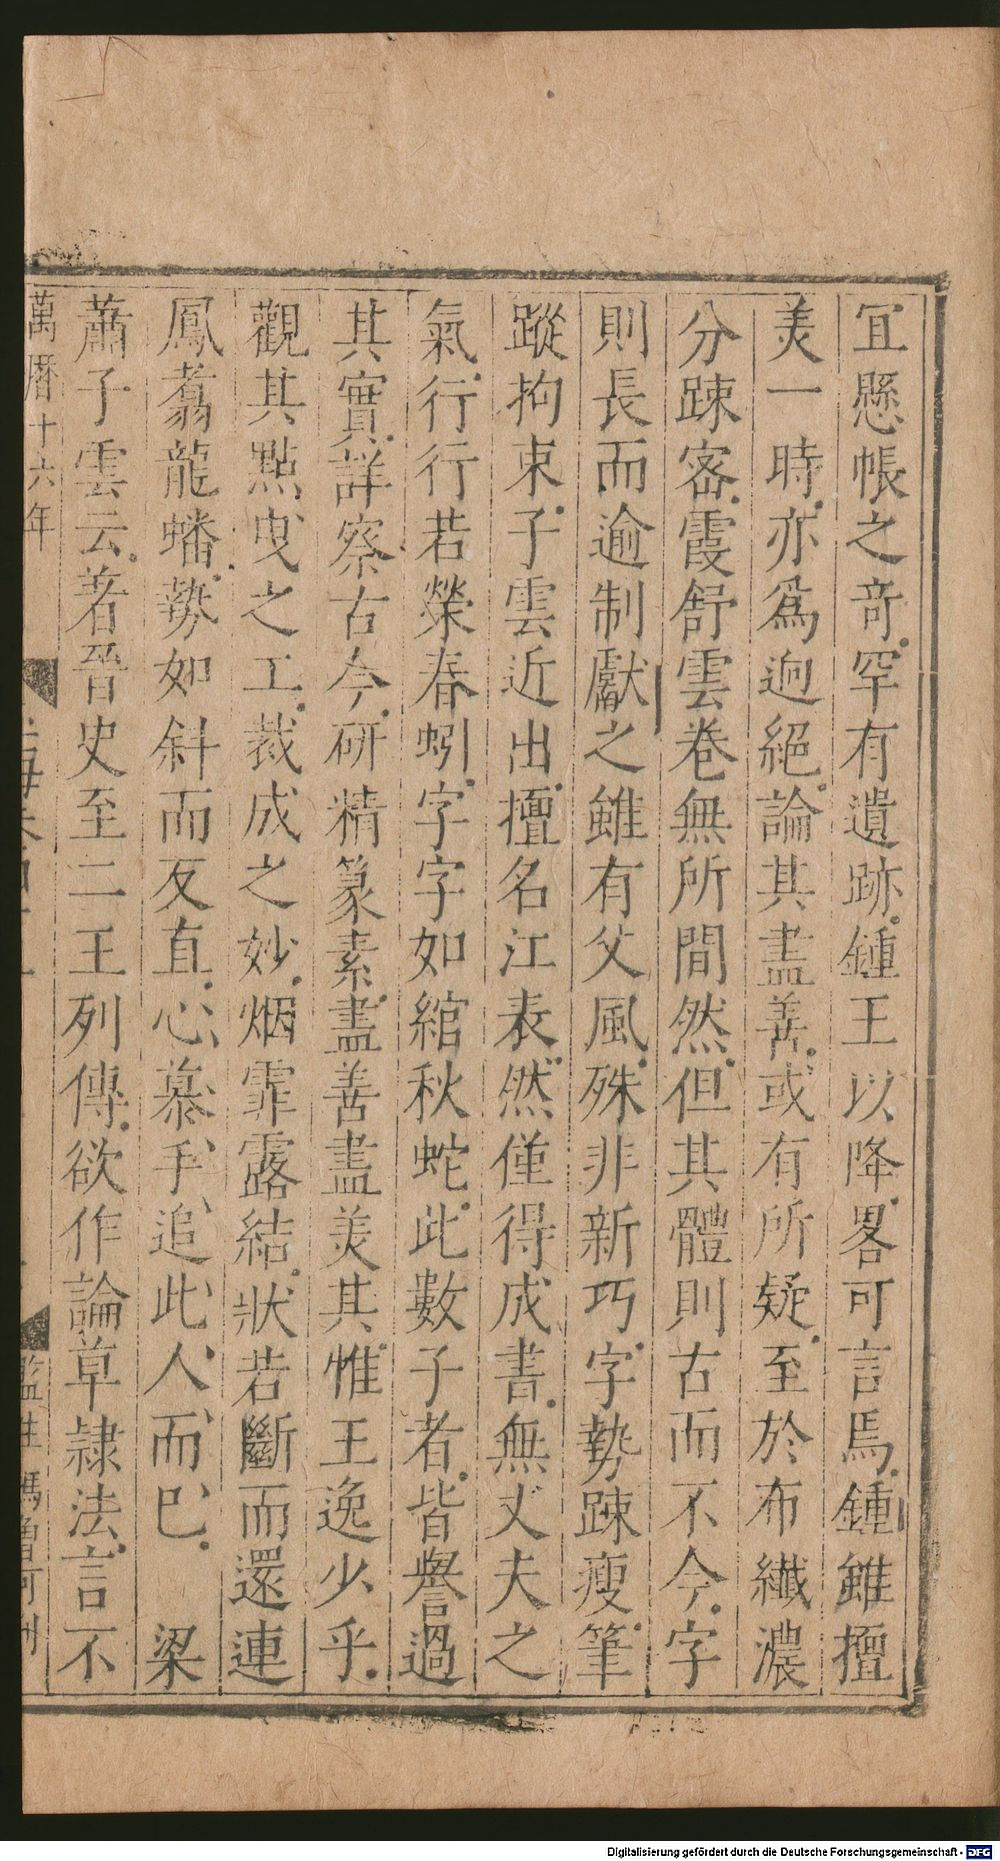 宜懸帳之竒罕有遺跡鍾王以降畧可言焉鍾雖擅
羙一時亦爲逈絕論其盡善或有所疑至於布纖濃
分踈密霞舒雲卷無所間然但其體則古而不今字
則長而逾制獻之雖有父風殊非新巧字勢踈瘦筆
蹤拘束子雲近出擅名江表然僅得成書無丈夫之
氣行行若縈春蚓字字如綰秋蛇此數子者皆譽過
其實詳察古今研精篆素盡善盡羙其惟王逸少乎
觀其點曳之工裁成之妙烟霏露結狀若斷而還連
鳳翥龍蟠勢如斜而反直心慕手追此人而巳　梁
蕭子雲云著晉史至二王列傳欲作論草隷法言不
萬曆十六年
監生馮曾可
Digitalisierung gefördert durch die Deutsche Forschungsgemeinschaft - DFG